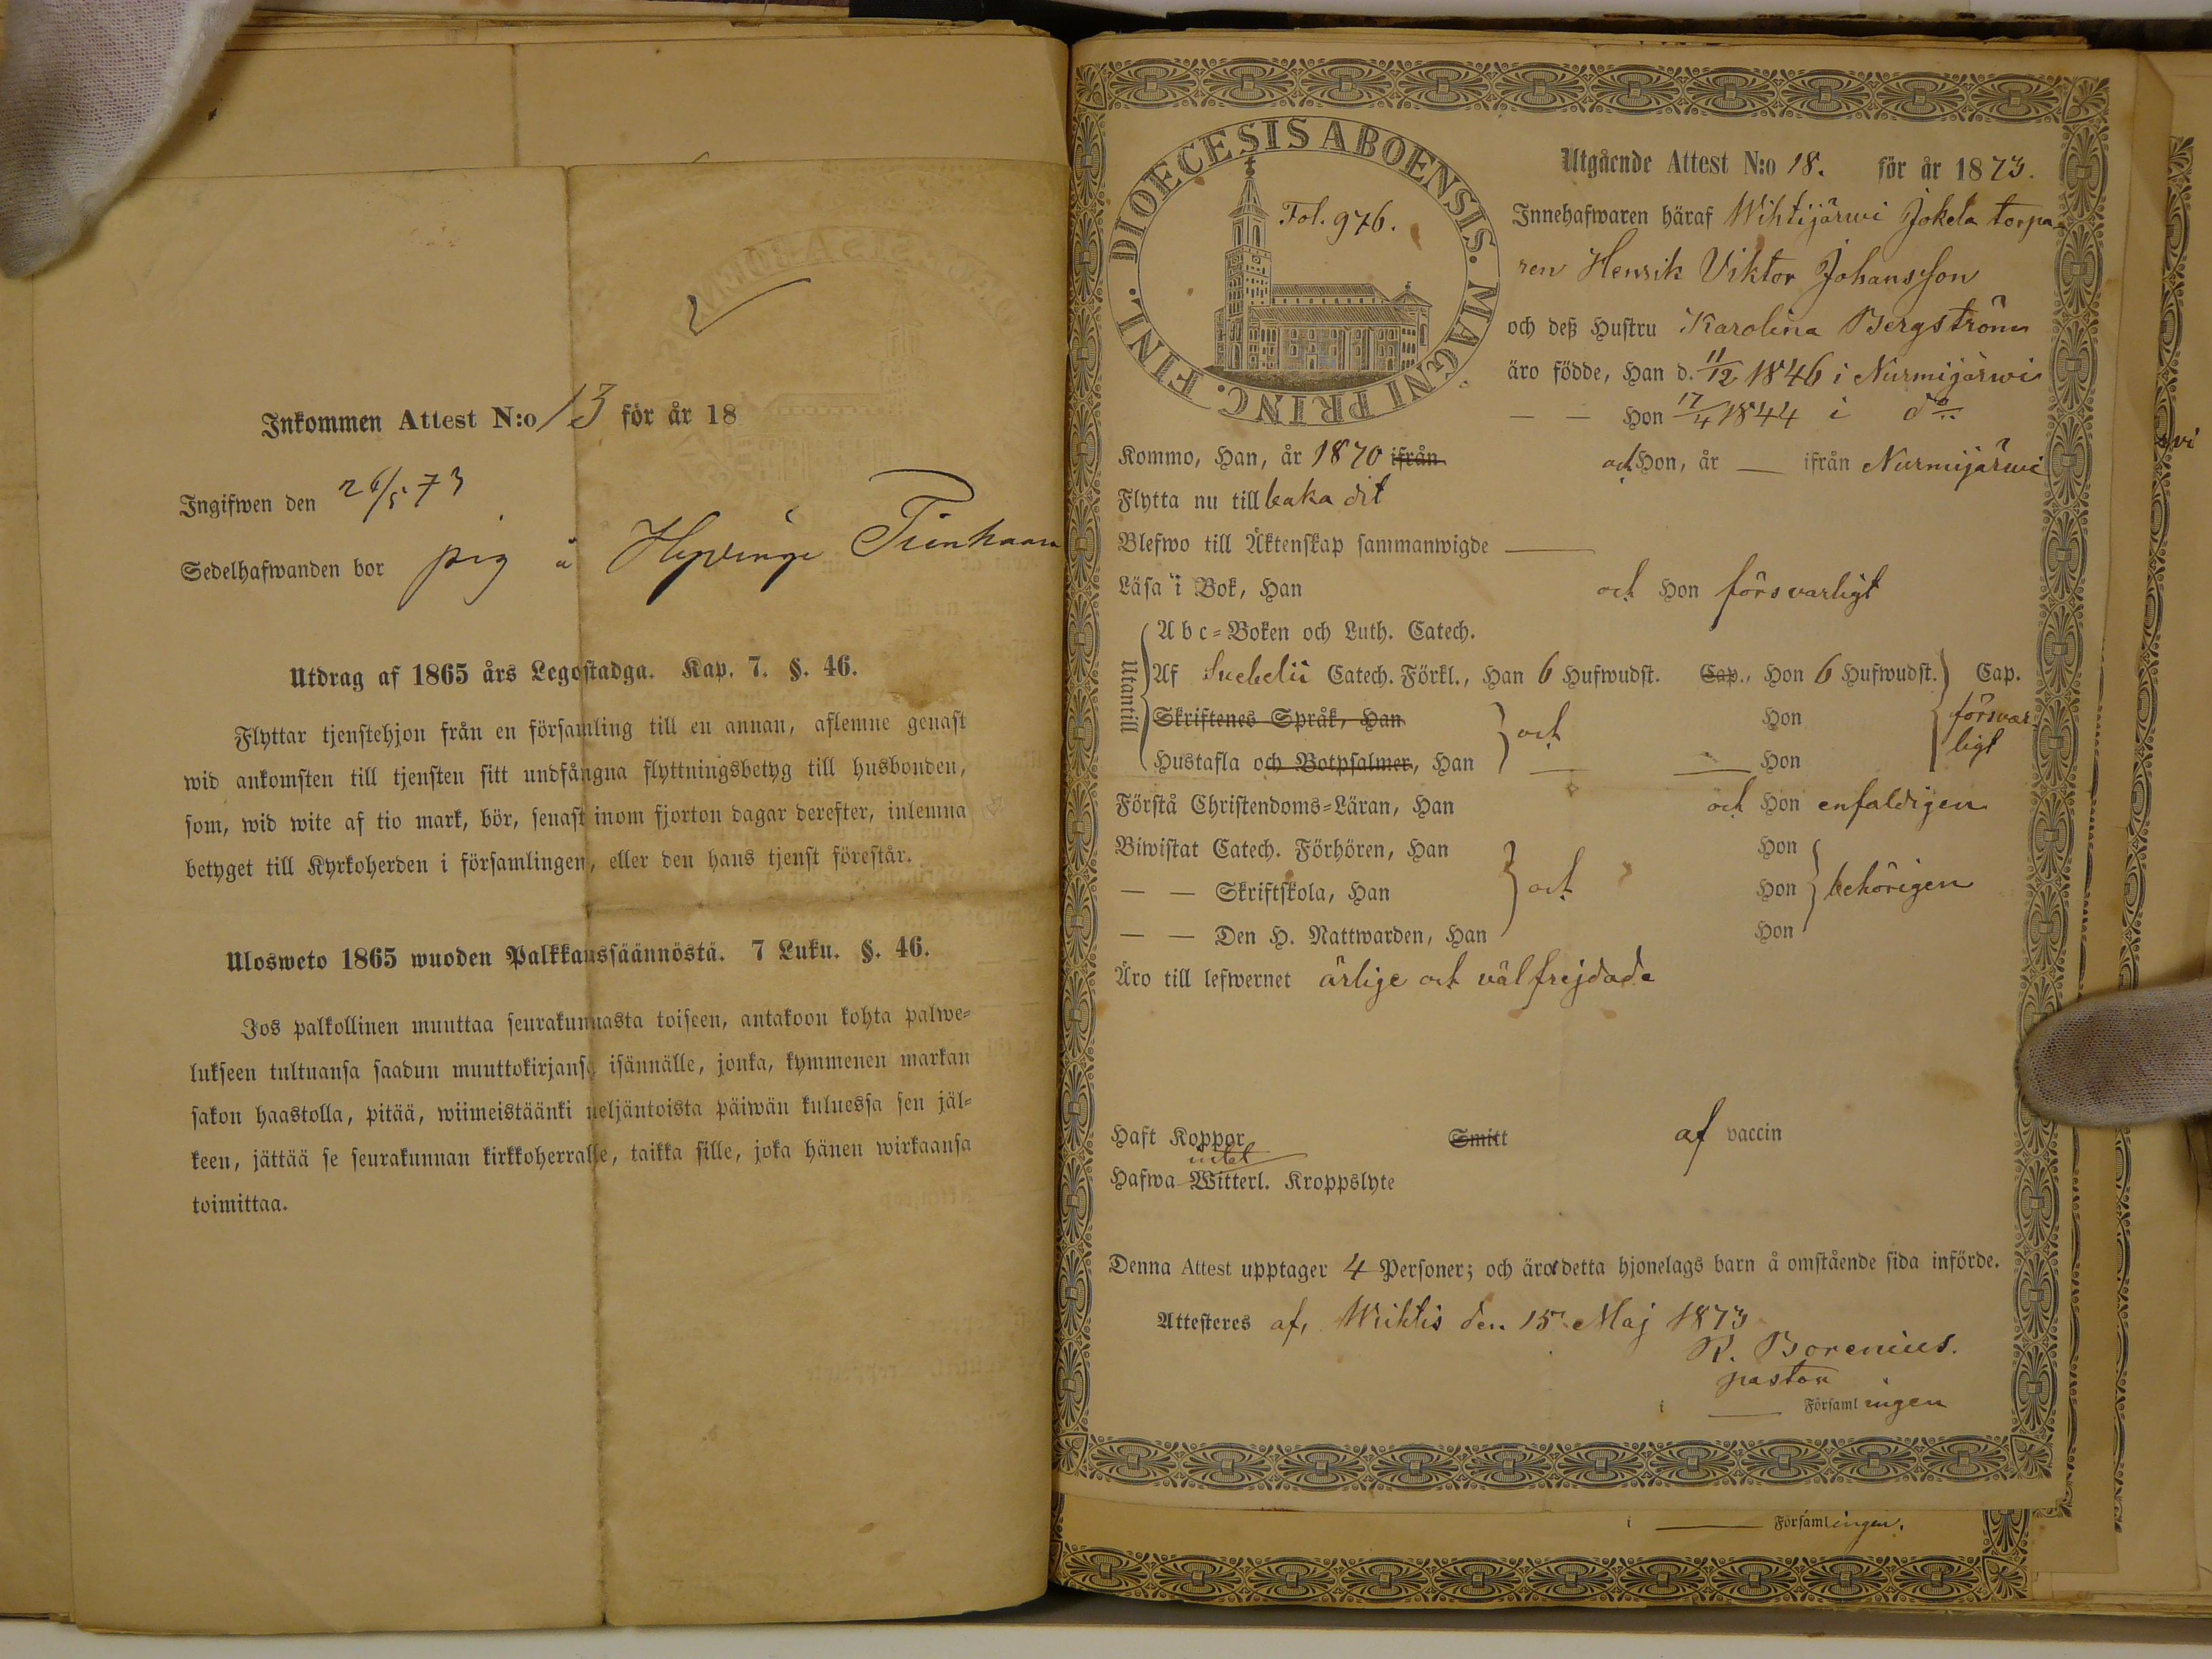 Inkommen Attest N:o 13 för år 18
Ingifwen den 26/5 73
Sedelhafwanden bor pig å Hyvinge
Utdrag af 1865 års Legostadga. Kap. 7. §. 46.
Flyttar tjenstehjon från en församling till en annan, aflemne genast
wid ankomsten till tjensten sitt undfångna flyttningsbetyg till husbonden,
som, wid wite af tio mark, bör, senast inom fjorton dagar derefter, inlemna
betyget till Kyrkoherden i församlingen, eller den hans tjenst förestår.
Ulosweto 1865 wuoden Palkkaussäännöstä. 7 Luku. §. 46.
Jos palkollinen muuttaa seurakunnasta toiseen, antakoon kohta palwe=
lukseen tultuansa saadun muuttokirjansa isännälle, jonka, kymmenen markan
sakon haastolla, pitää, wiimeistäänki neljäntoista päiwän kuluessa sen jäl=
keen, jättää se seurakunnan kirkkoherralle, taikka sille, joka hänen wirkaansa
toimittaa.
DIOECESIS ABOENSIS. MAGNI PRINC. FINL.
Fol. 976.
Utgående Attest N:o 18. för år 1873.
Innehafwaren häraf Wihtijärwi Jokela torpa-
ren Henrik Viktor Johansson
och deß Hustru Karolina Bergström
äro födde, Han d. 11/12 1846 i Nurmijärwi
— — Hon 17/4 1844 i do
Kommo, Han, år 1870 ifrån och Hon, år — ifrån Nurmijärwi
Flytta nu till baka dit
Blefwo till Äktenskap sammanwigde —
Läsa i Bok, Han och Hon försvarligt
Utantill
Abc=Boken och Luth. Catech.
Af Svebelii Catech. Förkl., Han 6 Hufwudst. Cap., Hon 6 Hufwudst. Cap.
Skriftenes Språk, Han och Hon försvar-
ligt
Hustafla och Botpsalmer, Han — — Hon
Förstå Christendoms=Läran, Han och Hon enfaldigen
Biwistat Catech. Förhören, Han Hon
— — Skriftskola, Han och Hon behörigen
— — Den H. Nattwarden, Han Hon
Äro till lefwernet ärlige och välfrejdade
Haft Koppor Smitt af vaccin
intet
Hafwa Witterl. Kroppslyte
Denna Attest upptager 4 Personer; och äro detta hjonelags barn å omstående sida införde.
Attesteres af, Wichtis den 15 Maj 1873
R. Borenius.
pastor
i — Församlingen
i — Församlingen.